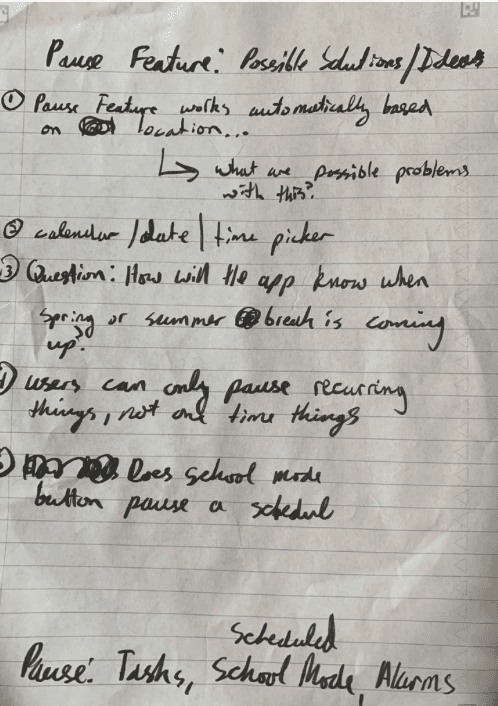 Pause Feature: Possible Solutions/Ideas
① Pause Feature works automatically based
on location...
↳ what are possible problems
with this?
② calendar/date/time picker
③ Question: How will the app know when
spring or summer break is coming
up?
④ users can only pause recurring
things, not one time things
⑤ Does school mode
button pause a schedul
Scheduled
Pause: Tasks, School Mode, Alarms